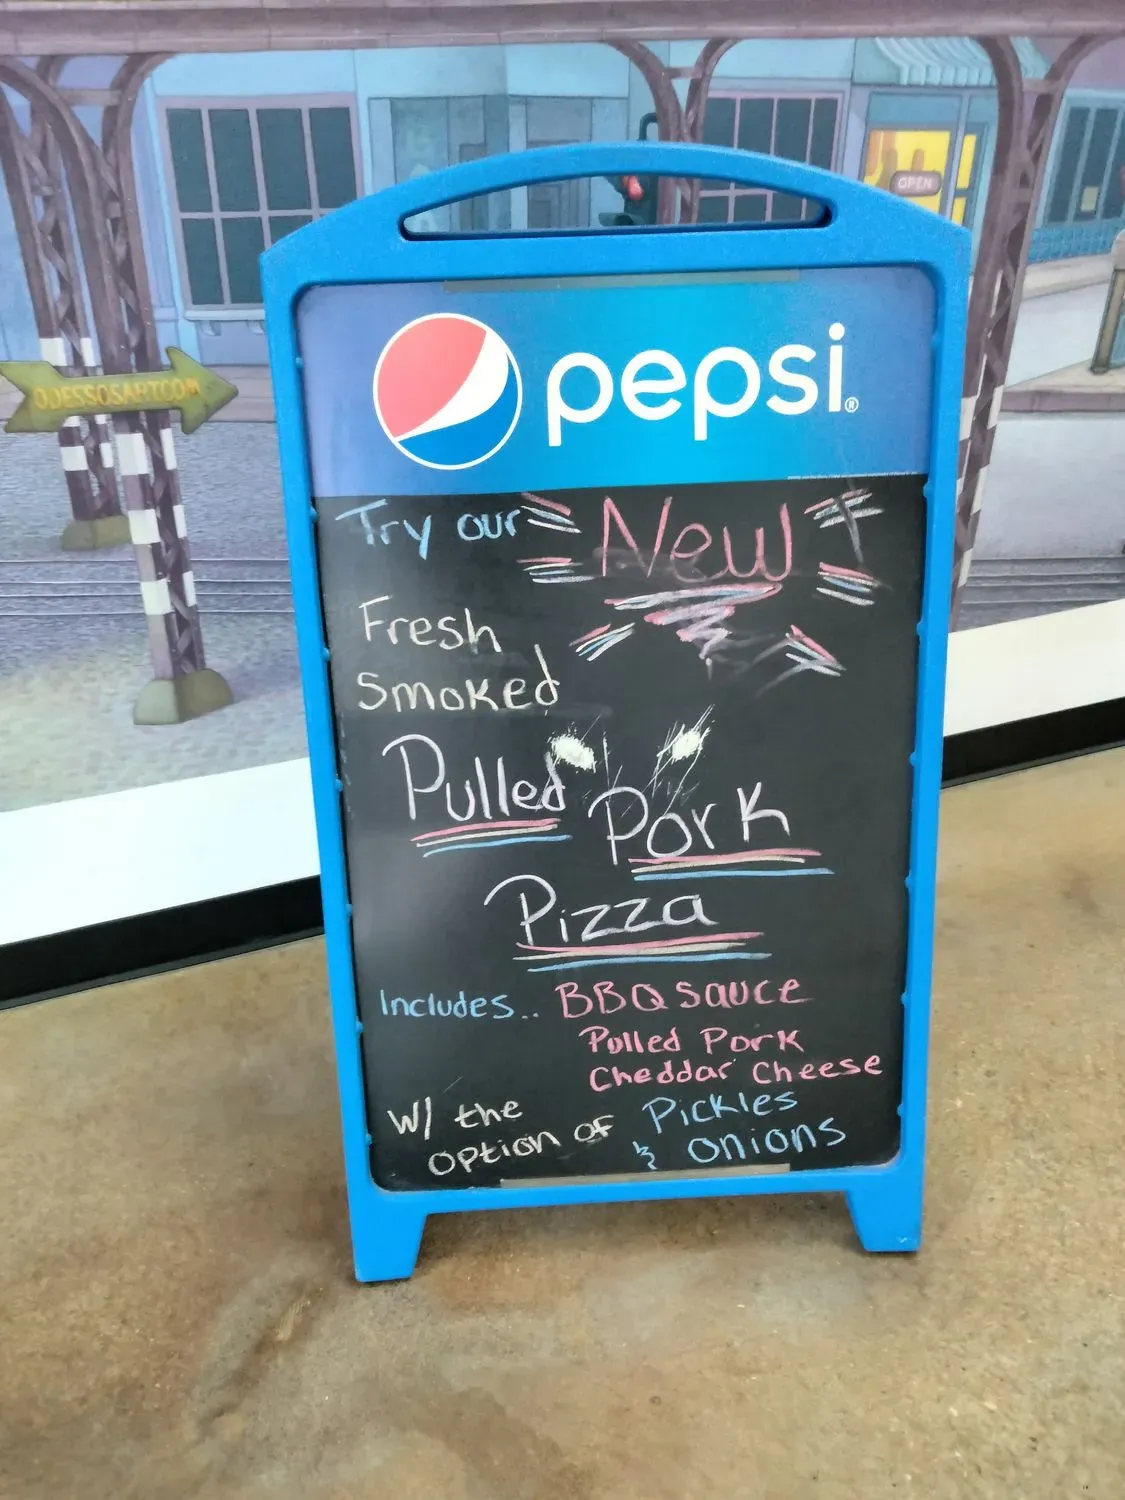 OPEN
ODESSOSART.COM
pepsi®
Try our New
Fresh
Smoked
Pulled
Pork
Pizza
Includes.. BBQ sauce
Pulled Pork
Cheddar Cheese
W/ the option of Pickles
& onions